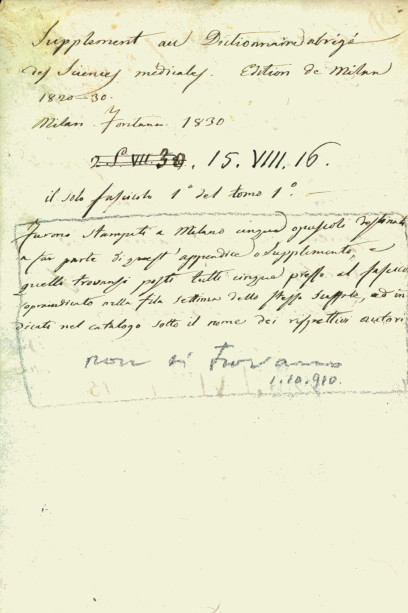 Supplement au Dictionnaire abrégé
des Sciences médicales. Edition de Milan
1820-30.
Milan Fontana 1830
2 S. VII. 30. 15. VIII. 16.
il solo fascicolo 1° del tomo 1°.
Furono stampati a Milano cinque opuscoli destinati
a far parte di quest'appendice o Supplemento, e
quelli trovansi posti tutti cinque presso al fascicolo
sopraindicato nella fila settima dello stesso , ed in
dicati nel catalogo sotto il nome dei rispettivi autori
non si trovano
1.10.910.